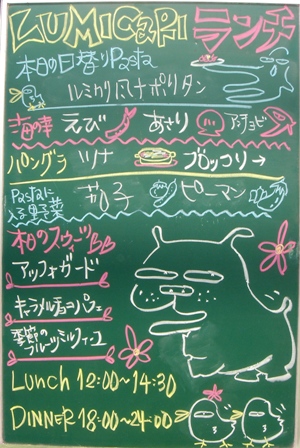 LUMICaPRi ランチ
本日の日替りPasta
ルミカリ風ナポリタン
海の幸 えび あさり アンチョビ
パングラ ツナ ブロッコリー
Pastaに入る野菜 茄子 ピーマン
本日のスウィーツ
アッフォガード
キャラメルチョコパフェ
季節のフルーツミルフィーユ
Lunch 12:00〜14:30
DINNER 18:00〜24:00